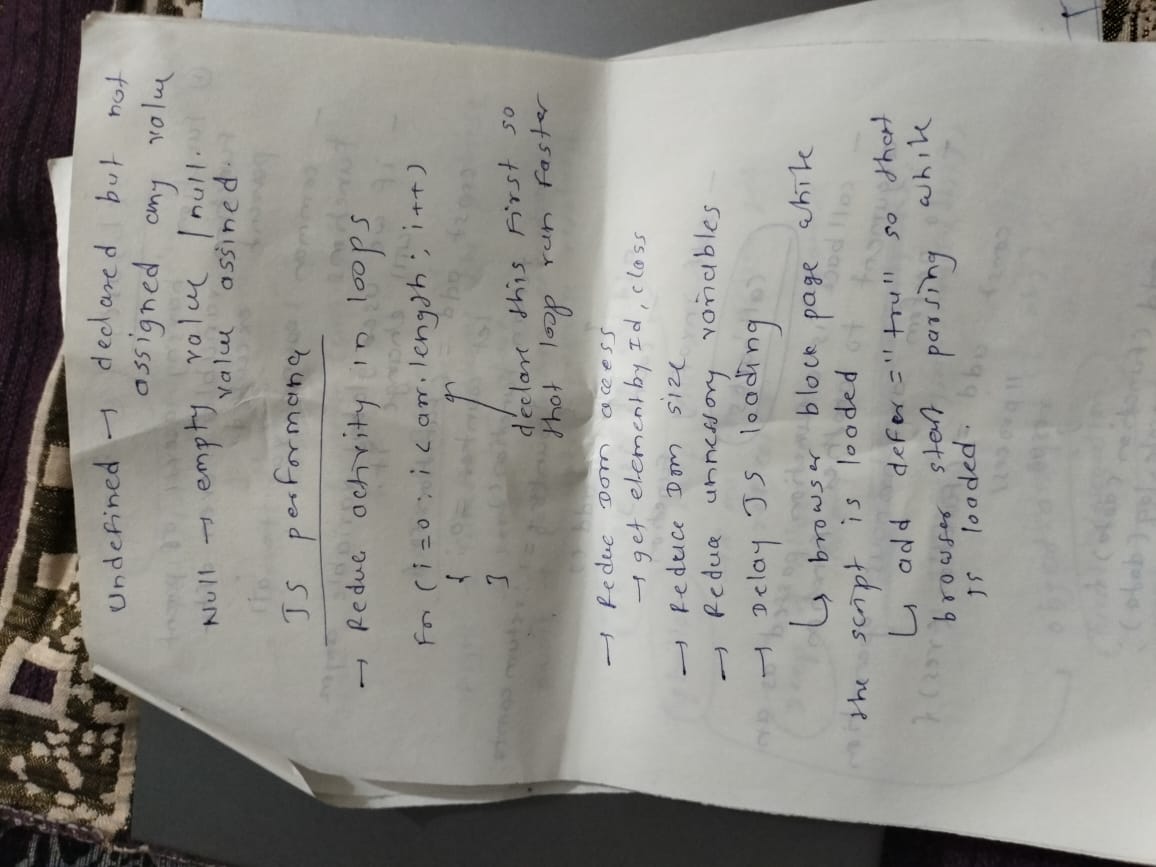 Undefined → declared but not
assigned any value
Null → empty value / null.
value assined.
JS performance
→ Reduc activity in loops
for (i=0; i< arr.length; i++)
{
}
declare this first so
that loop run faster
→ Reduc DOM access
→ get elementby Id, class
→ Reduce DOM size
→ Reduce unnessory variables
→ Delay JS loading
↳ browser block page while
the script is loaded
↳ add defer = "true" so that
browser start parsing while
is loaded.